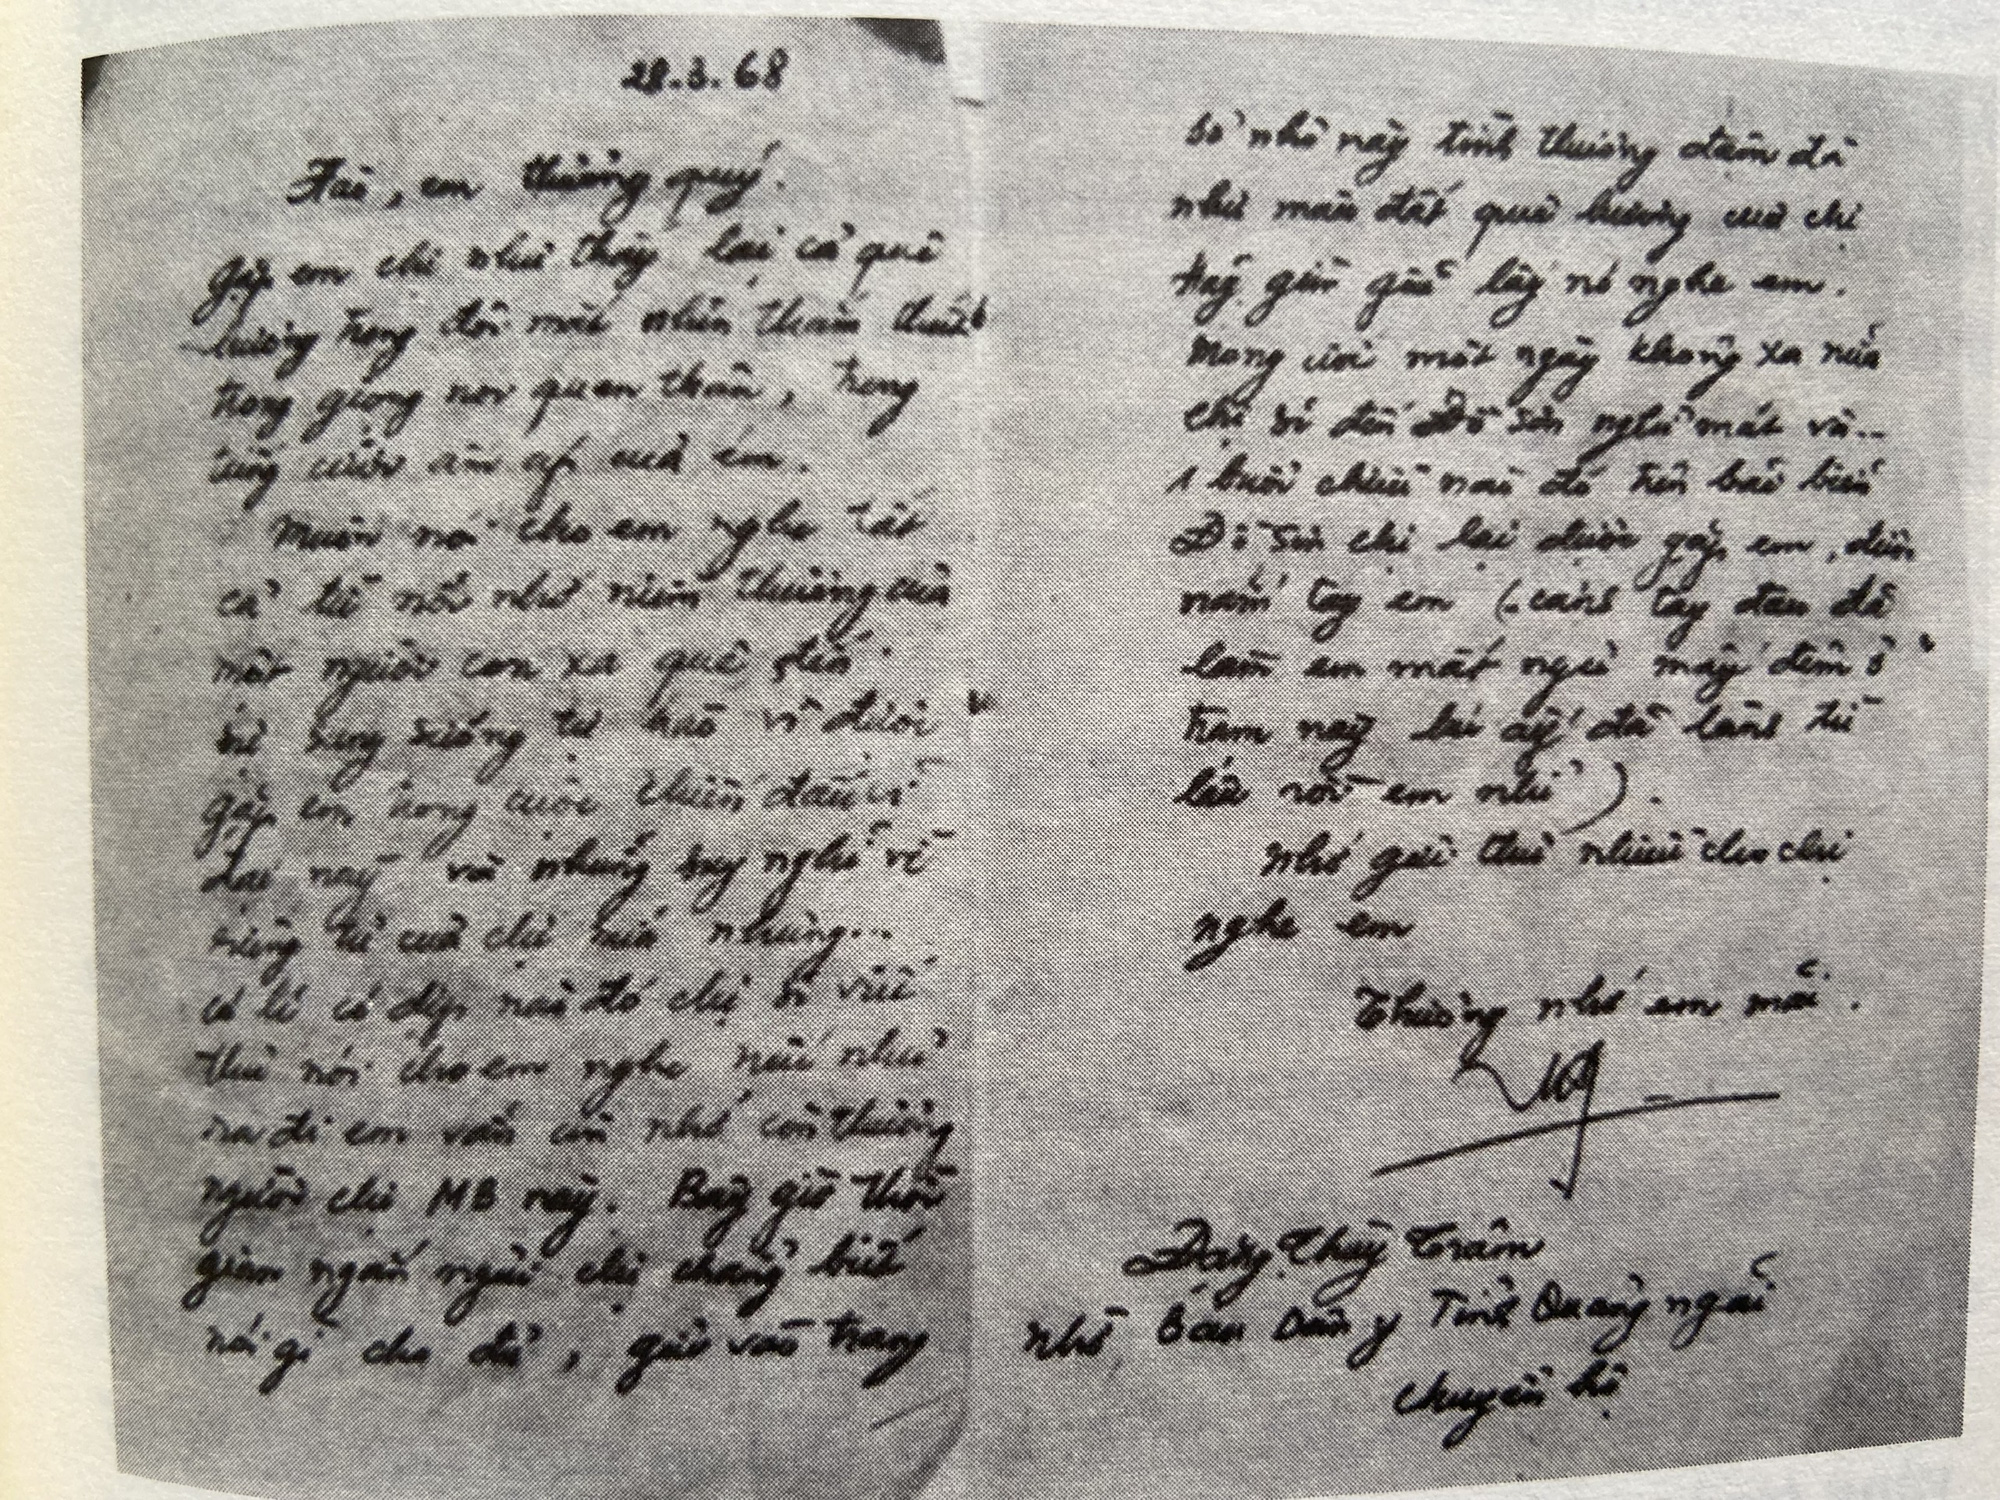 28.3.68
Tài, em thương quý.
Gặp em chị như thấy lại cả quê
hương trong đôi mắt nhìn tha thiết
trong giọng nói quen thân, trong
tiếng cười ấm áp của em.
Muốn nói cho em nghe tất
cả từ nỗi nhớ niềm thương của
một người con xa quê đến
sự sung sướng tự hào vì được
gặp em trong cuộc chiến đấu vĩ
đại này và những suy nghĩ về
riêng tư của chị nữa nhưng...
có lẽ có dịp nào đó chị sẽ viết
thư nói cho em nghe nếu như
ra đi em vẫn còn nhớ còn thương
người chị MB này. Bây giờ thời
gian ngắn ngủi chị chẳng biết
nói gì cho đủ, gửi vào trang
sổ nhỏ này tình thương đậm đà
như màu đất quê hương của chị
Hãy gìn giữ lấy nó nghe em.
Mong ước một ngày không xa nữa
chị sẽ đến Đồ Sơn nghỉ mát và...
1 buổi chiều nào đó trên bãi biển
Đồ Sơn chị lại được gặp em, được
nắm tay em (cánh tay đau đã
làm em mất ngủ mấy đêm ở
trạm này lúc ấy đã lành từ
lâu rồi em nhỉ).
Nhớ gửi thư nhiều cho chị
nghe em
Thương nhớ em mãi.
Đặng Thùy Trâm
Nhờ Ban Dân y Tỉnh Quảng Ngãi
chuyển hộ